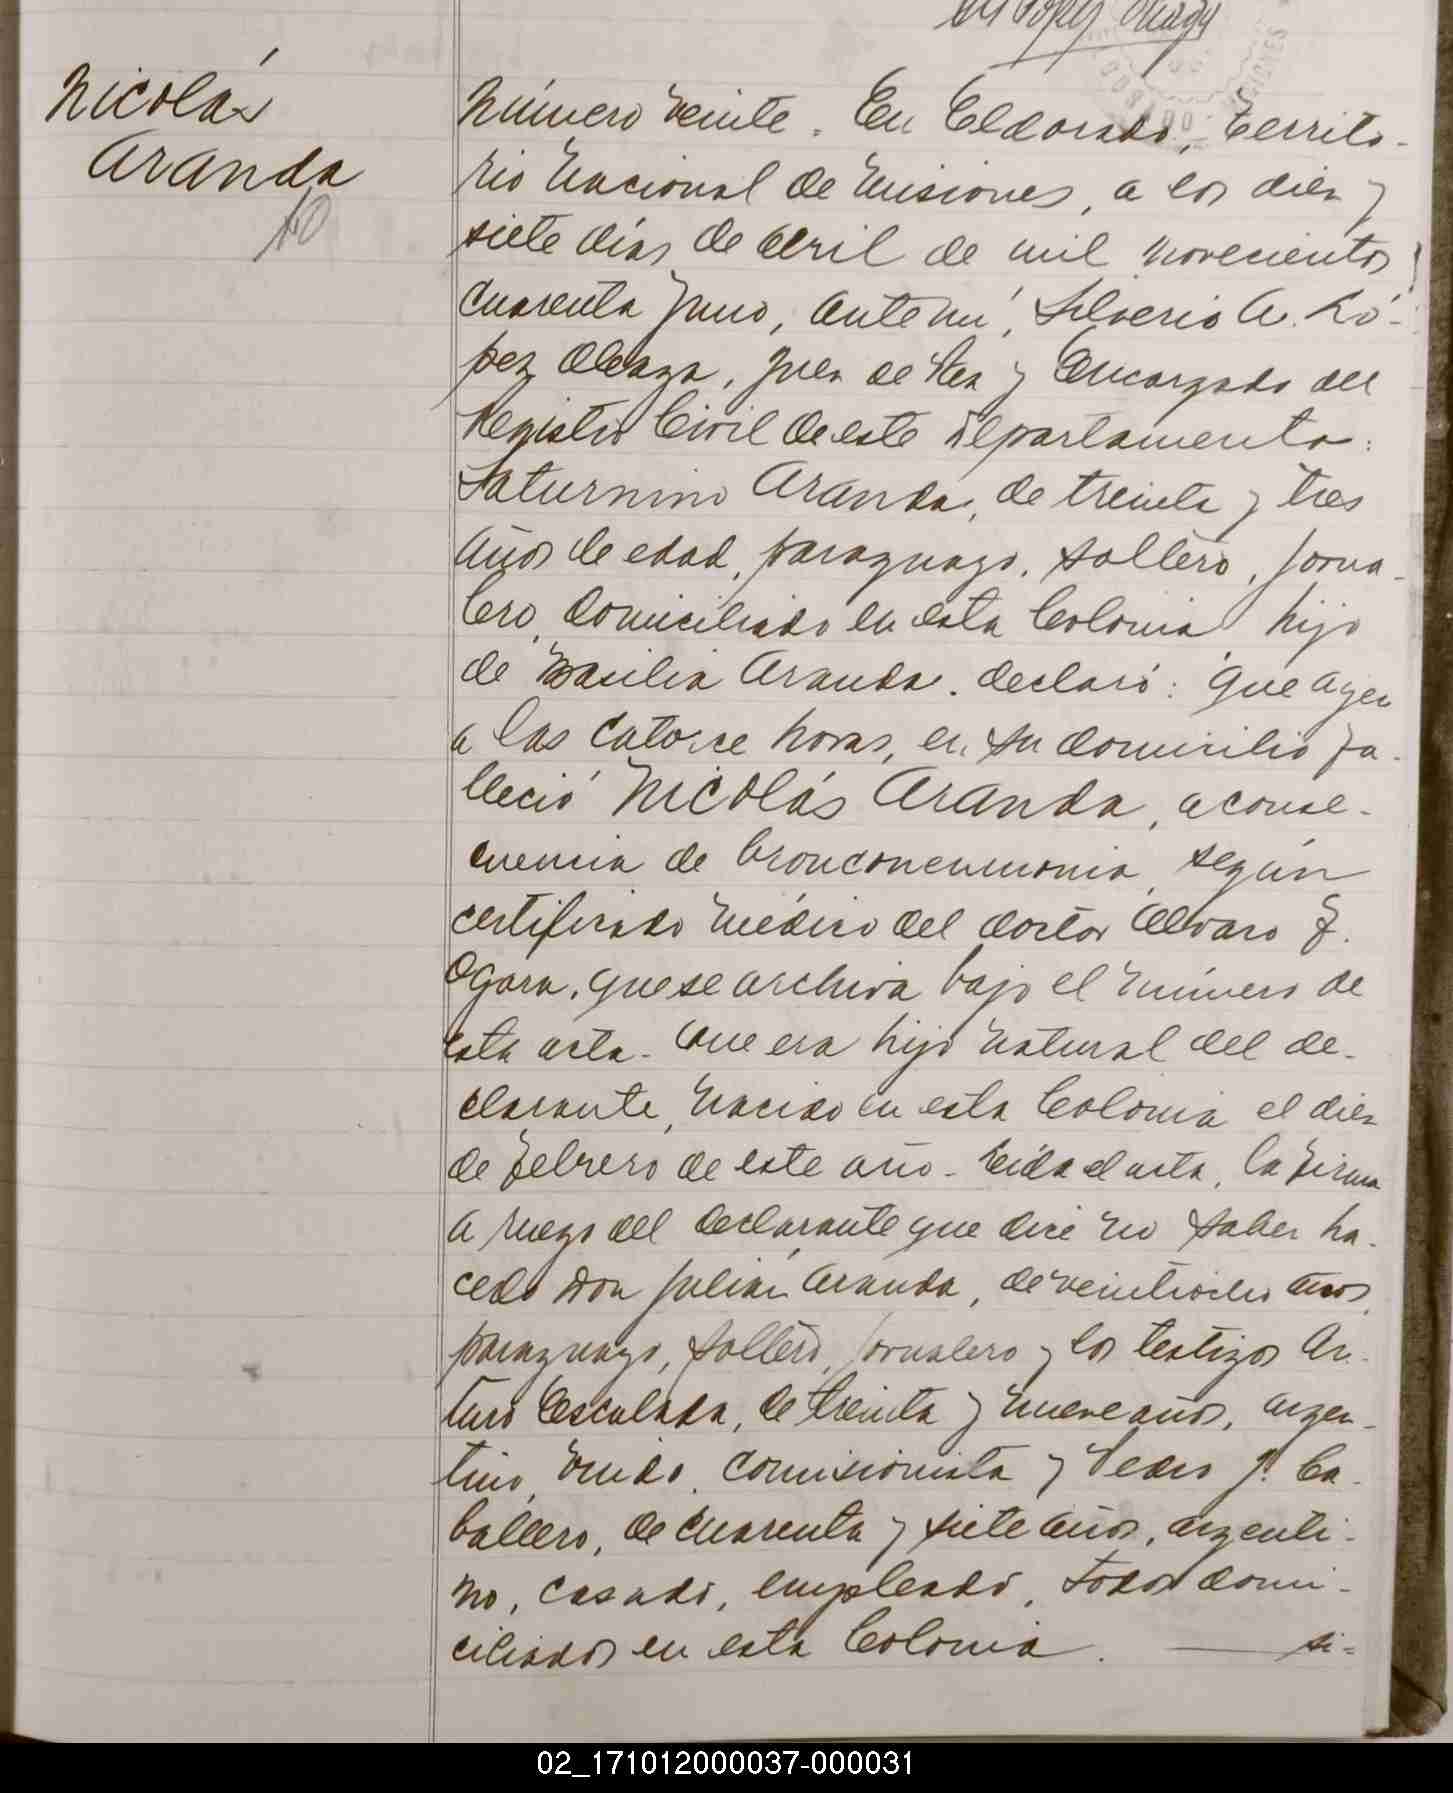 Nicolás
Aranda
10
Número veinte. En Eldorado, Territo-
rio Nacional de Misiones, a los diez y
siete días de Abril de mil novecientos
cuarenta y uno, ante mí, Silverio A. Ló-
pez Aleaga, Juez de Paz y Encargado del
Registro Civil de este departamento:
Saturnino Aranda, de treinta y tres
años de edad, paraguayo, soltero, jorna-
lero, domiciliado en esta Colonia hijo
de Basilia Aranda. declaró: Que ayer
a las catorce horas, en su domicilio fa-
lleció Nicolás Aranda, a conse-
cuencia de bronconeumonia, según
certificado médico del doctor Alvaro F.
Ogara, que se archiva bajo el número de
esta acta. Que era hijo natural del de-
clarante, nacido en esta Colonia el diez
de febrero de este año. Leída el acta, la firma
a ruego del declarante que dice no saber ha-
cerlo Don Julián Aranda, de veintiocho años,
paraguayo, soltero, jornalero y los testigos Ar-
turo Escalada, de treinta y nueve años, argen-
tino, viudo, comisionista y Pedro J. Ca-
ballero, de cuarenta y siete años, argenti-
no, casado, empleado, todos domi-
ciliados en esta Colonia. si=
02_171012000037-000031